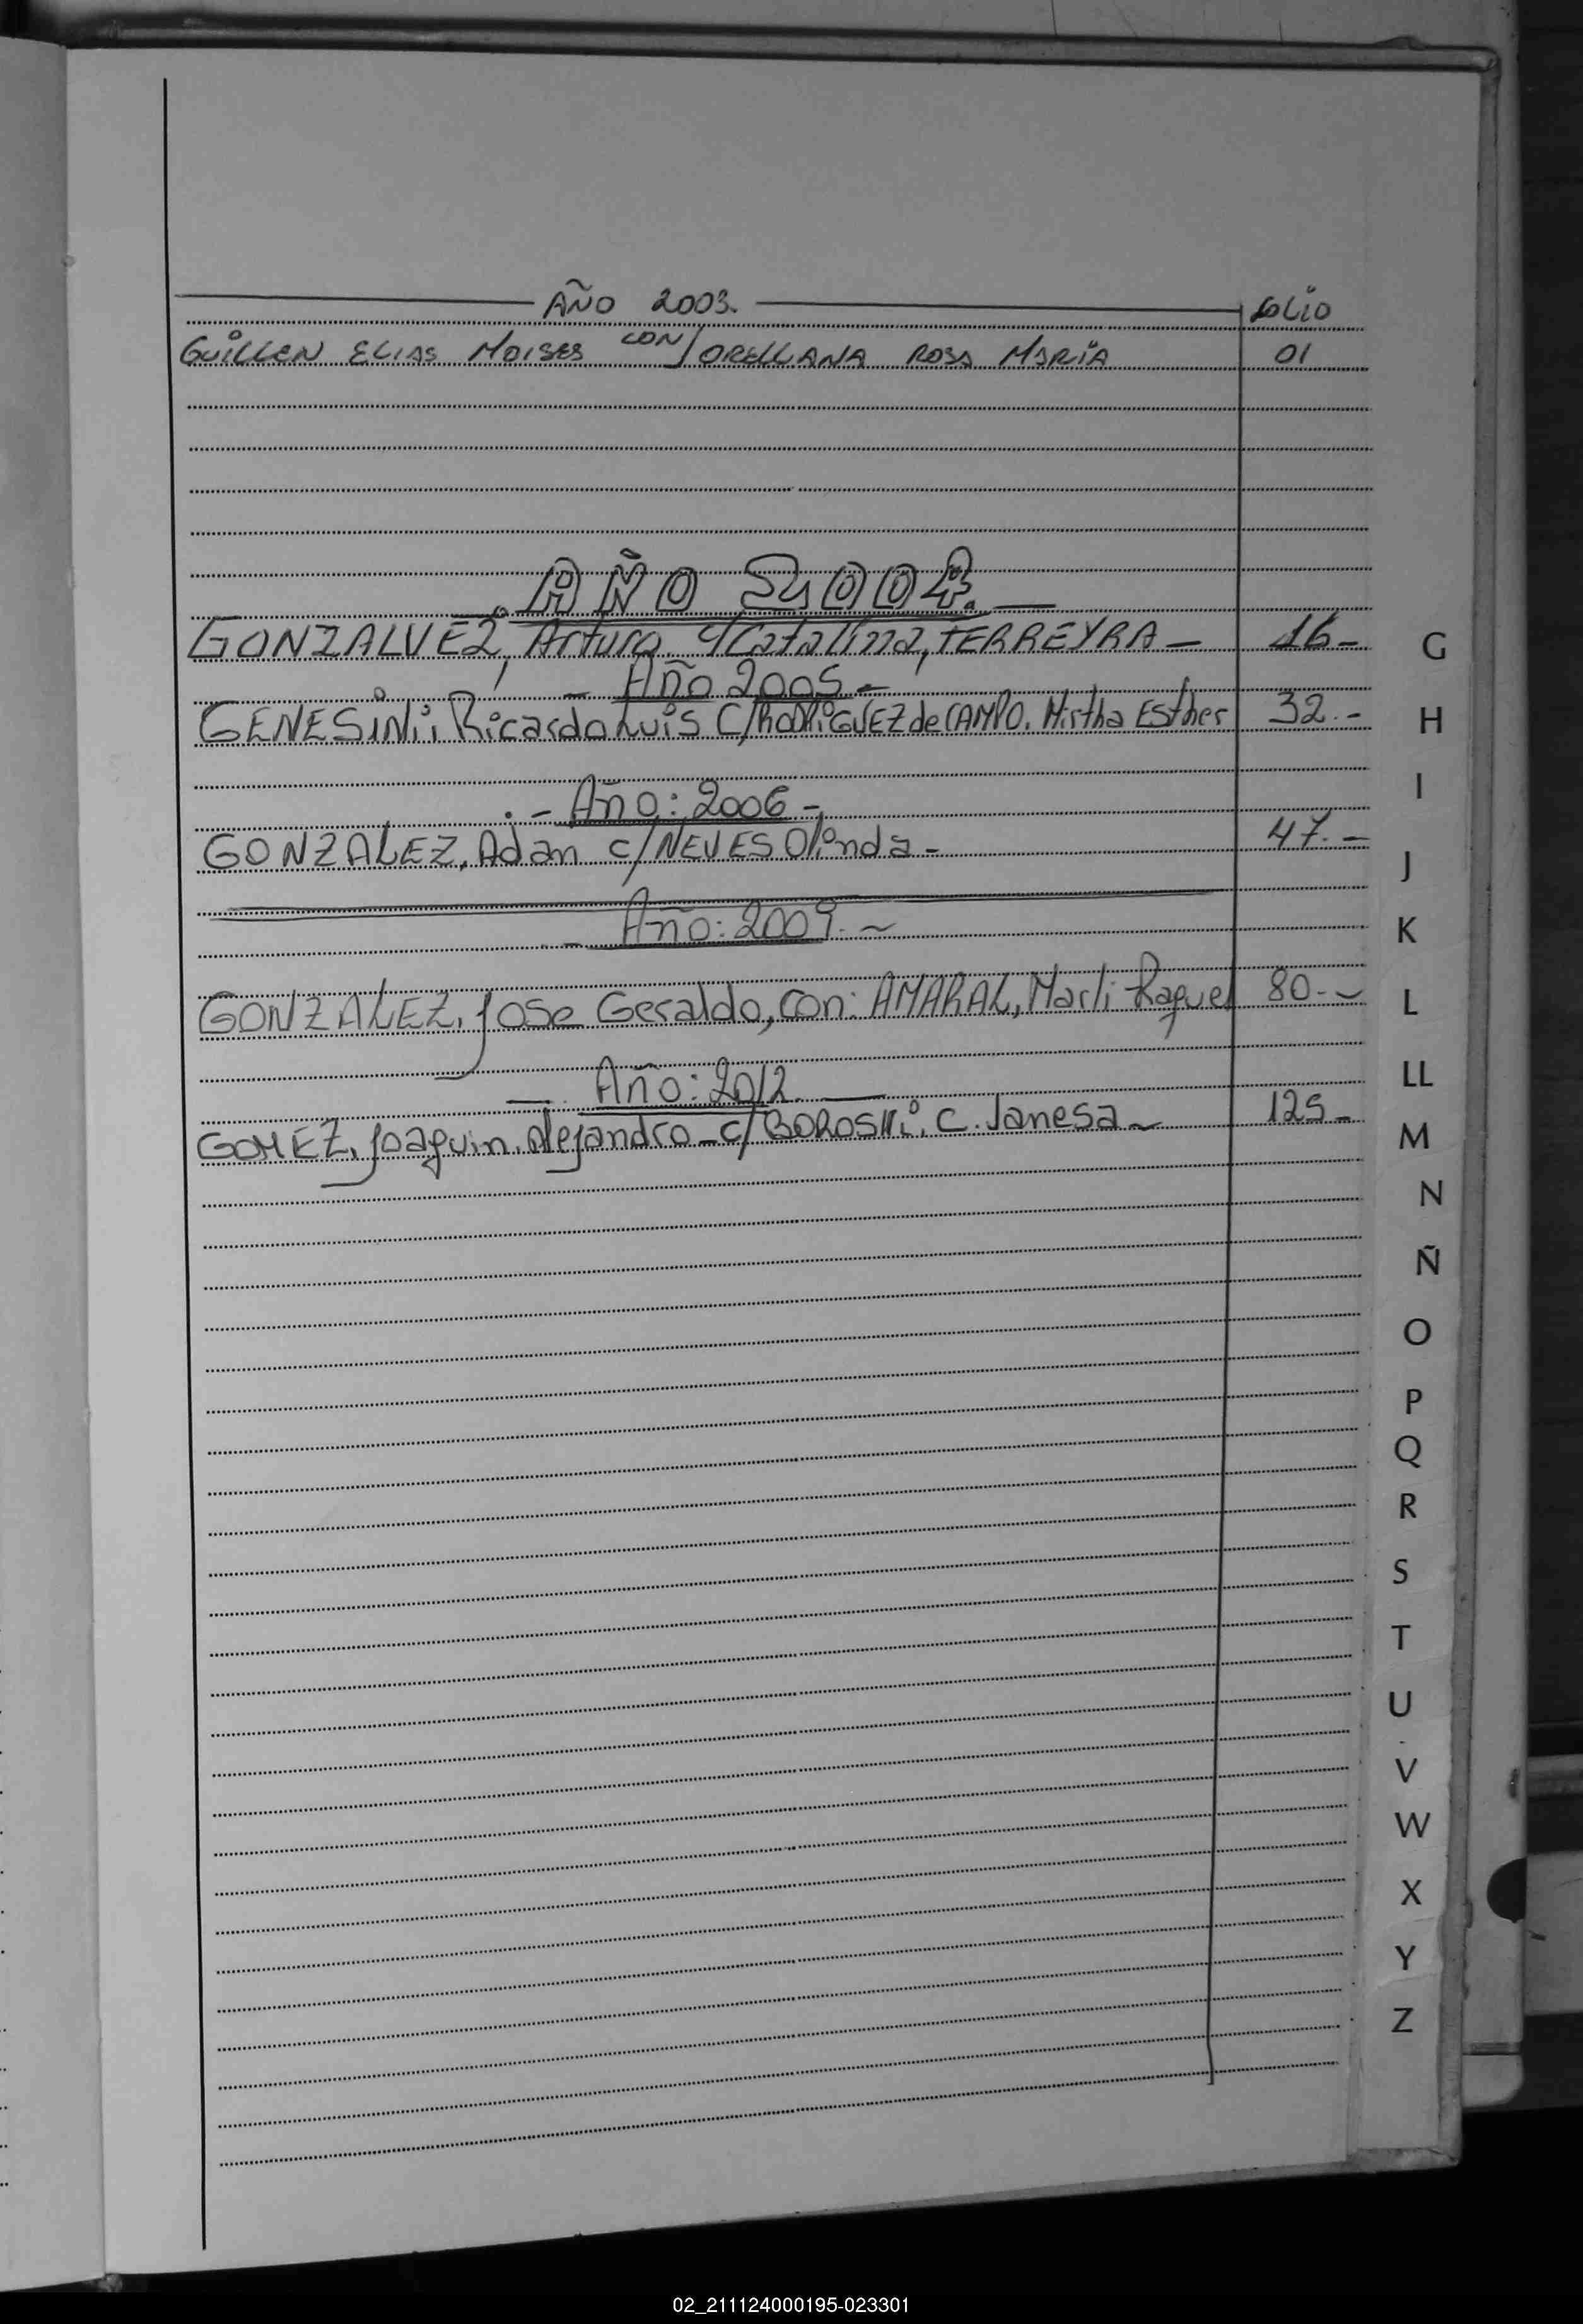 AÑO 2003. folio
GUILLEN ELIAS MOISES CON/ORELLANA ROSA MARÍA 01
AÑO 2004.—
GONZALVEZ, Arturo c/Catalina, FERREYRA — 16-
- Año 2005 -
GENESINI, Ricardo Luis C/RODRIGUEZ de CAMPO. Mirtha Esther 32.-
.- Año: 2006 -
GONZALEZ, Adan c/NEVES Olinda - 47.-
- Año: 2009. ~
GONZALEZ, Jose Geraldo, con: AMARAL, Marli Raquel 80.-
—. Año: 2012. —
GOMEZ, Joaquin. Alejandro - c/ C. Janesa ~ 125-
G
H
I
J
K
L
LL
M
N
Ñ
O
P
Q
R
S
T
U
V
W
X
Y
Z
02_211124000195-023301